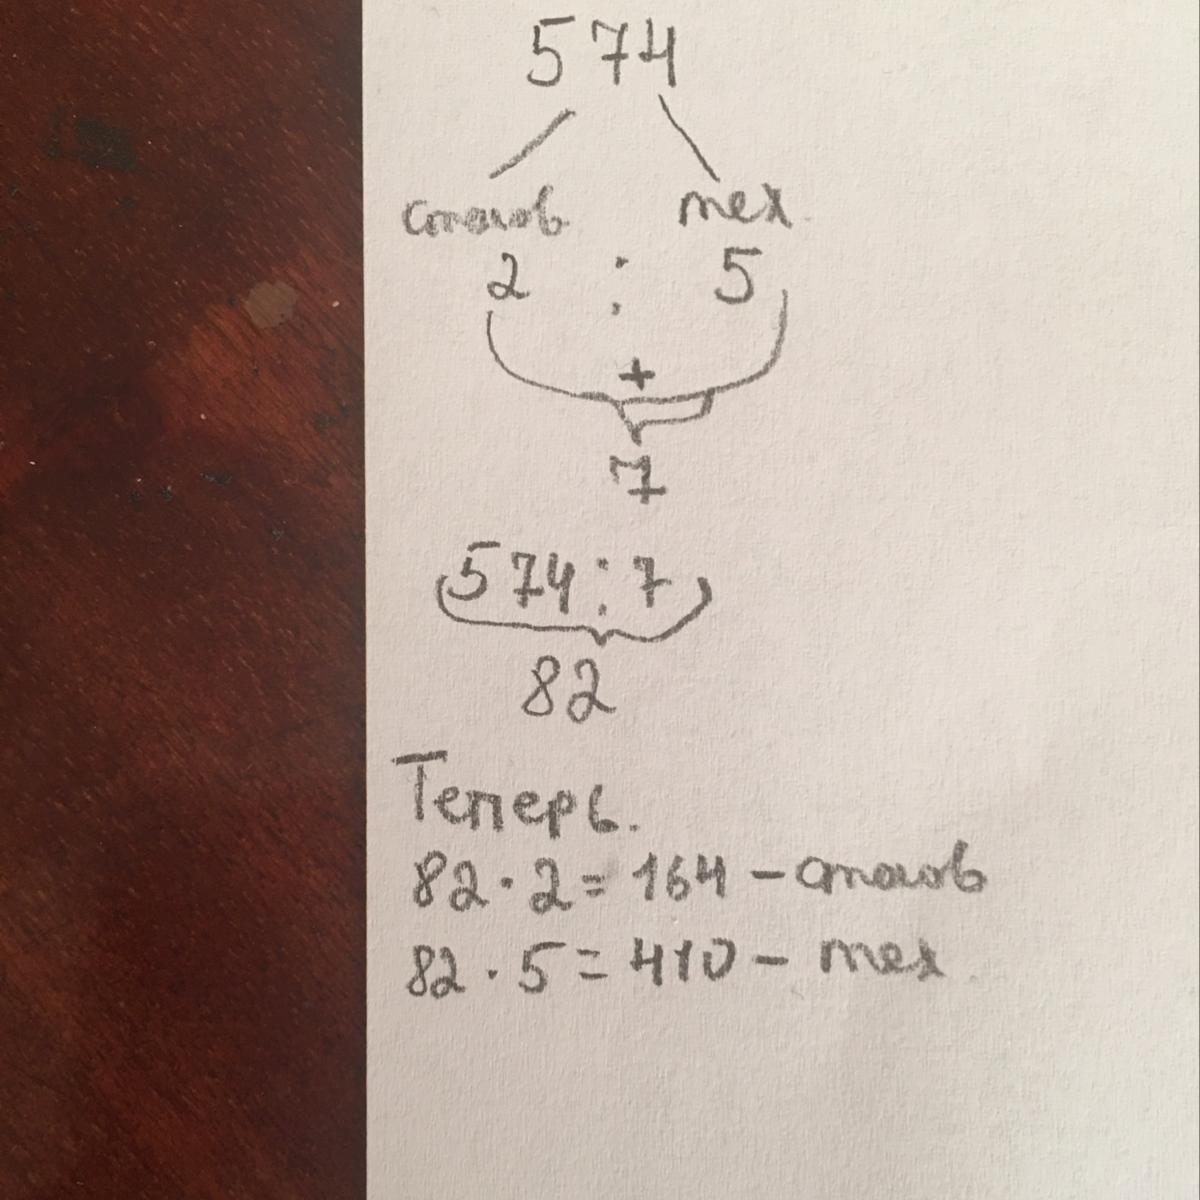 574
столов тех.
2 : 5
+
7
574:7
82
Теперь.
82·2=164 – столов
82·5=410 – тех.